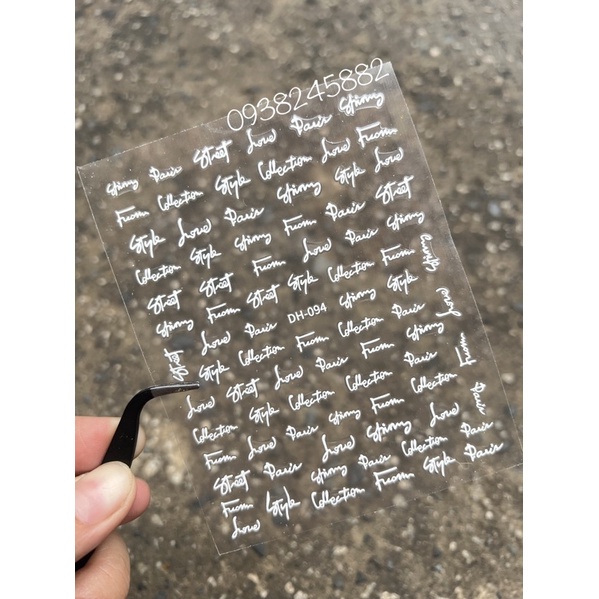 0938245882
Spring Paris Street Love Paris Spring
From Collection Style Collection Love From
Style Love Paris Spring Style Love
Collection Style Spring From Paris Street
Street Street From Love Paris Spring
Spring From Street Style Collection From Spring
Street Love Paris DH-094 Spring Style Love
Style Collection From Collection Paris
Love Street Love Paris From Spring From
Collection Style Collection Collection Paris
From Love Paris Spring From Collection Paris
Street Paris Love Spring Love
From Spring Paris Collection Paris
Love Style Collection From Style Paris